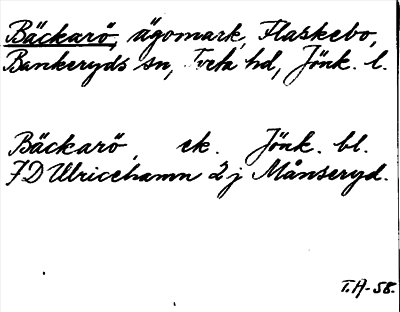 Bäckarö, ägomark, Flaskebo,
Bankeryds sn, Tveta hd, Jönk. l.
Bäckarö ek. Jönk. bl.
7D Ulricehamn 2j Månseryd.
T.A-58.